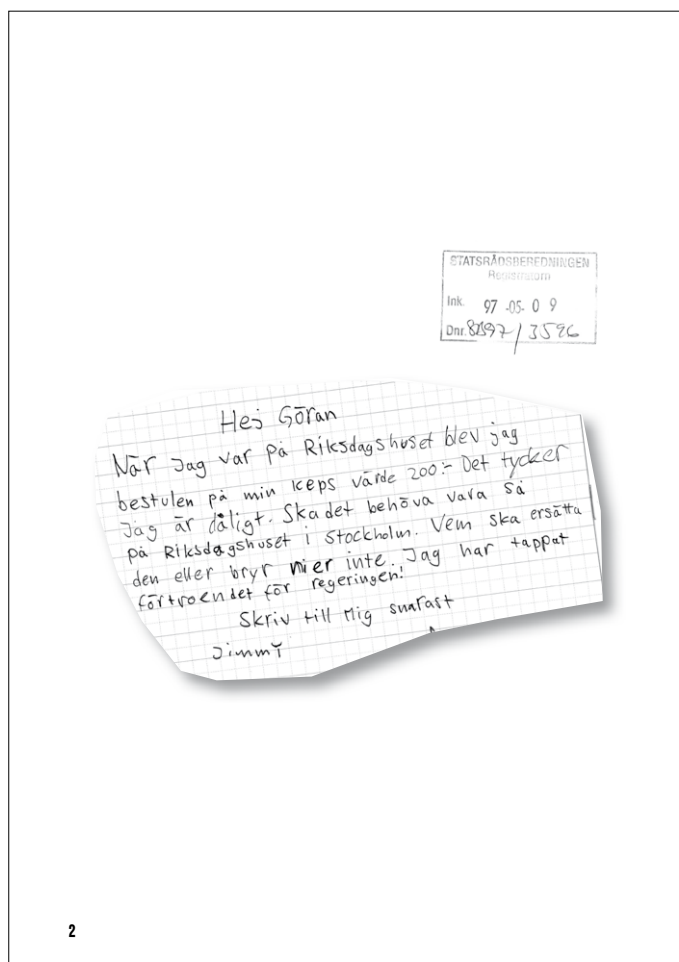 STATSRÅDSBEREDNINGEN
Registratorn
Ink. 97 -05- 0 9
Dnr. /3596
Hej Göran
När Jag var på Riksdagshuset blev jag
bestulen på min keps värde 200:- Det tycker
Jag är dåligt. Ska det behöva vara så
på Riksdagshuset i Stockholm. Vem ska ersätta
den eller bryr nier inte. Jag har tappat
förtroendet för regeringen!
Skriv till Mig snarast
Jimmy
2